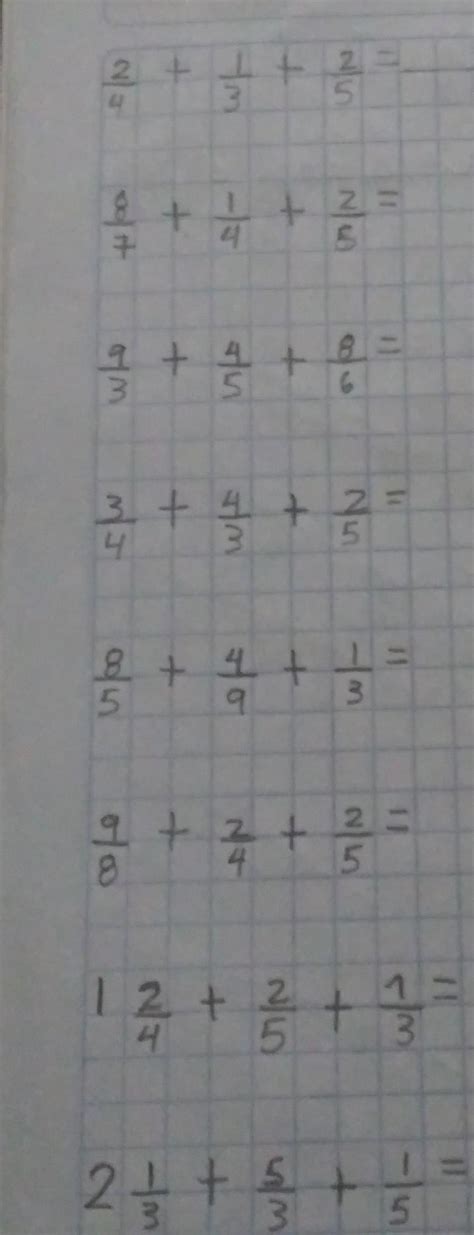 2/4 + 1/3 + 2/5 =
8/7 + 1/4 + 2/5 =
9/3 + 4/5 + 8/6 =
3/4 + 4/3 + 2/5 =
8/5 + 4/9 + 1/3 =
9/8 + 2/4 + 2/5 =
1 2/4 + 2/5 + 1/3 =
2 1/3 + 5/3 + 1/5 =